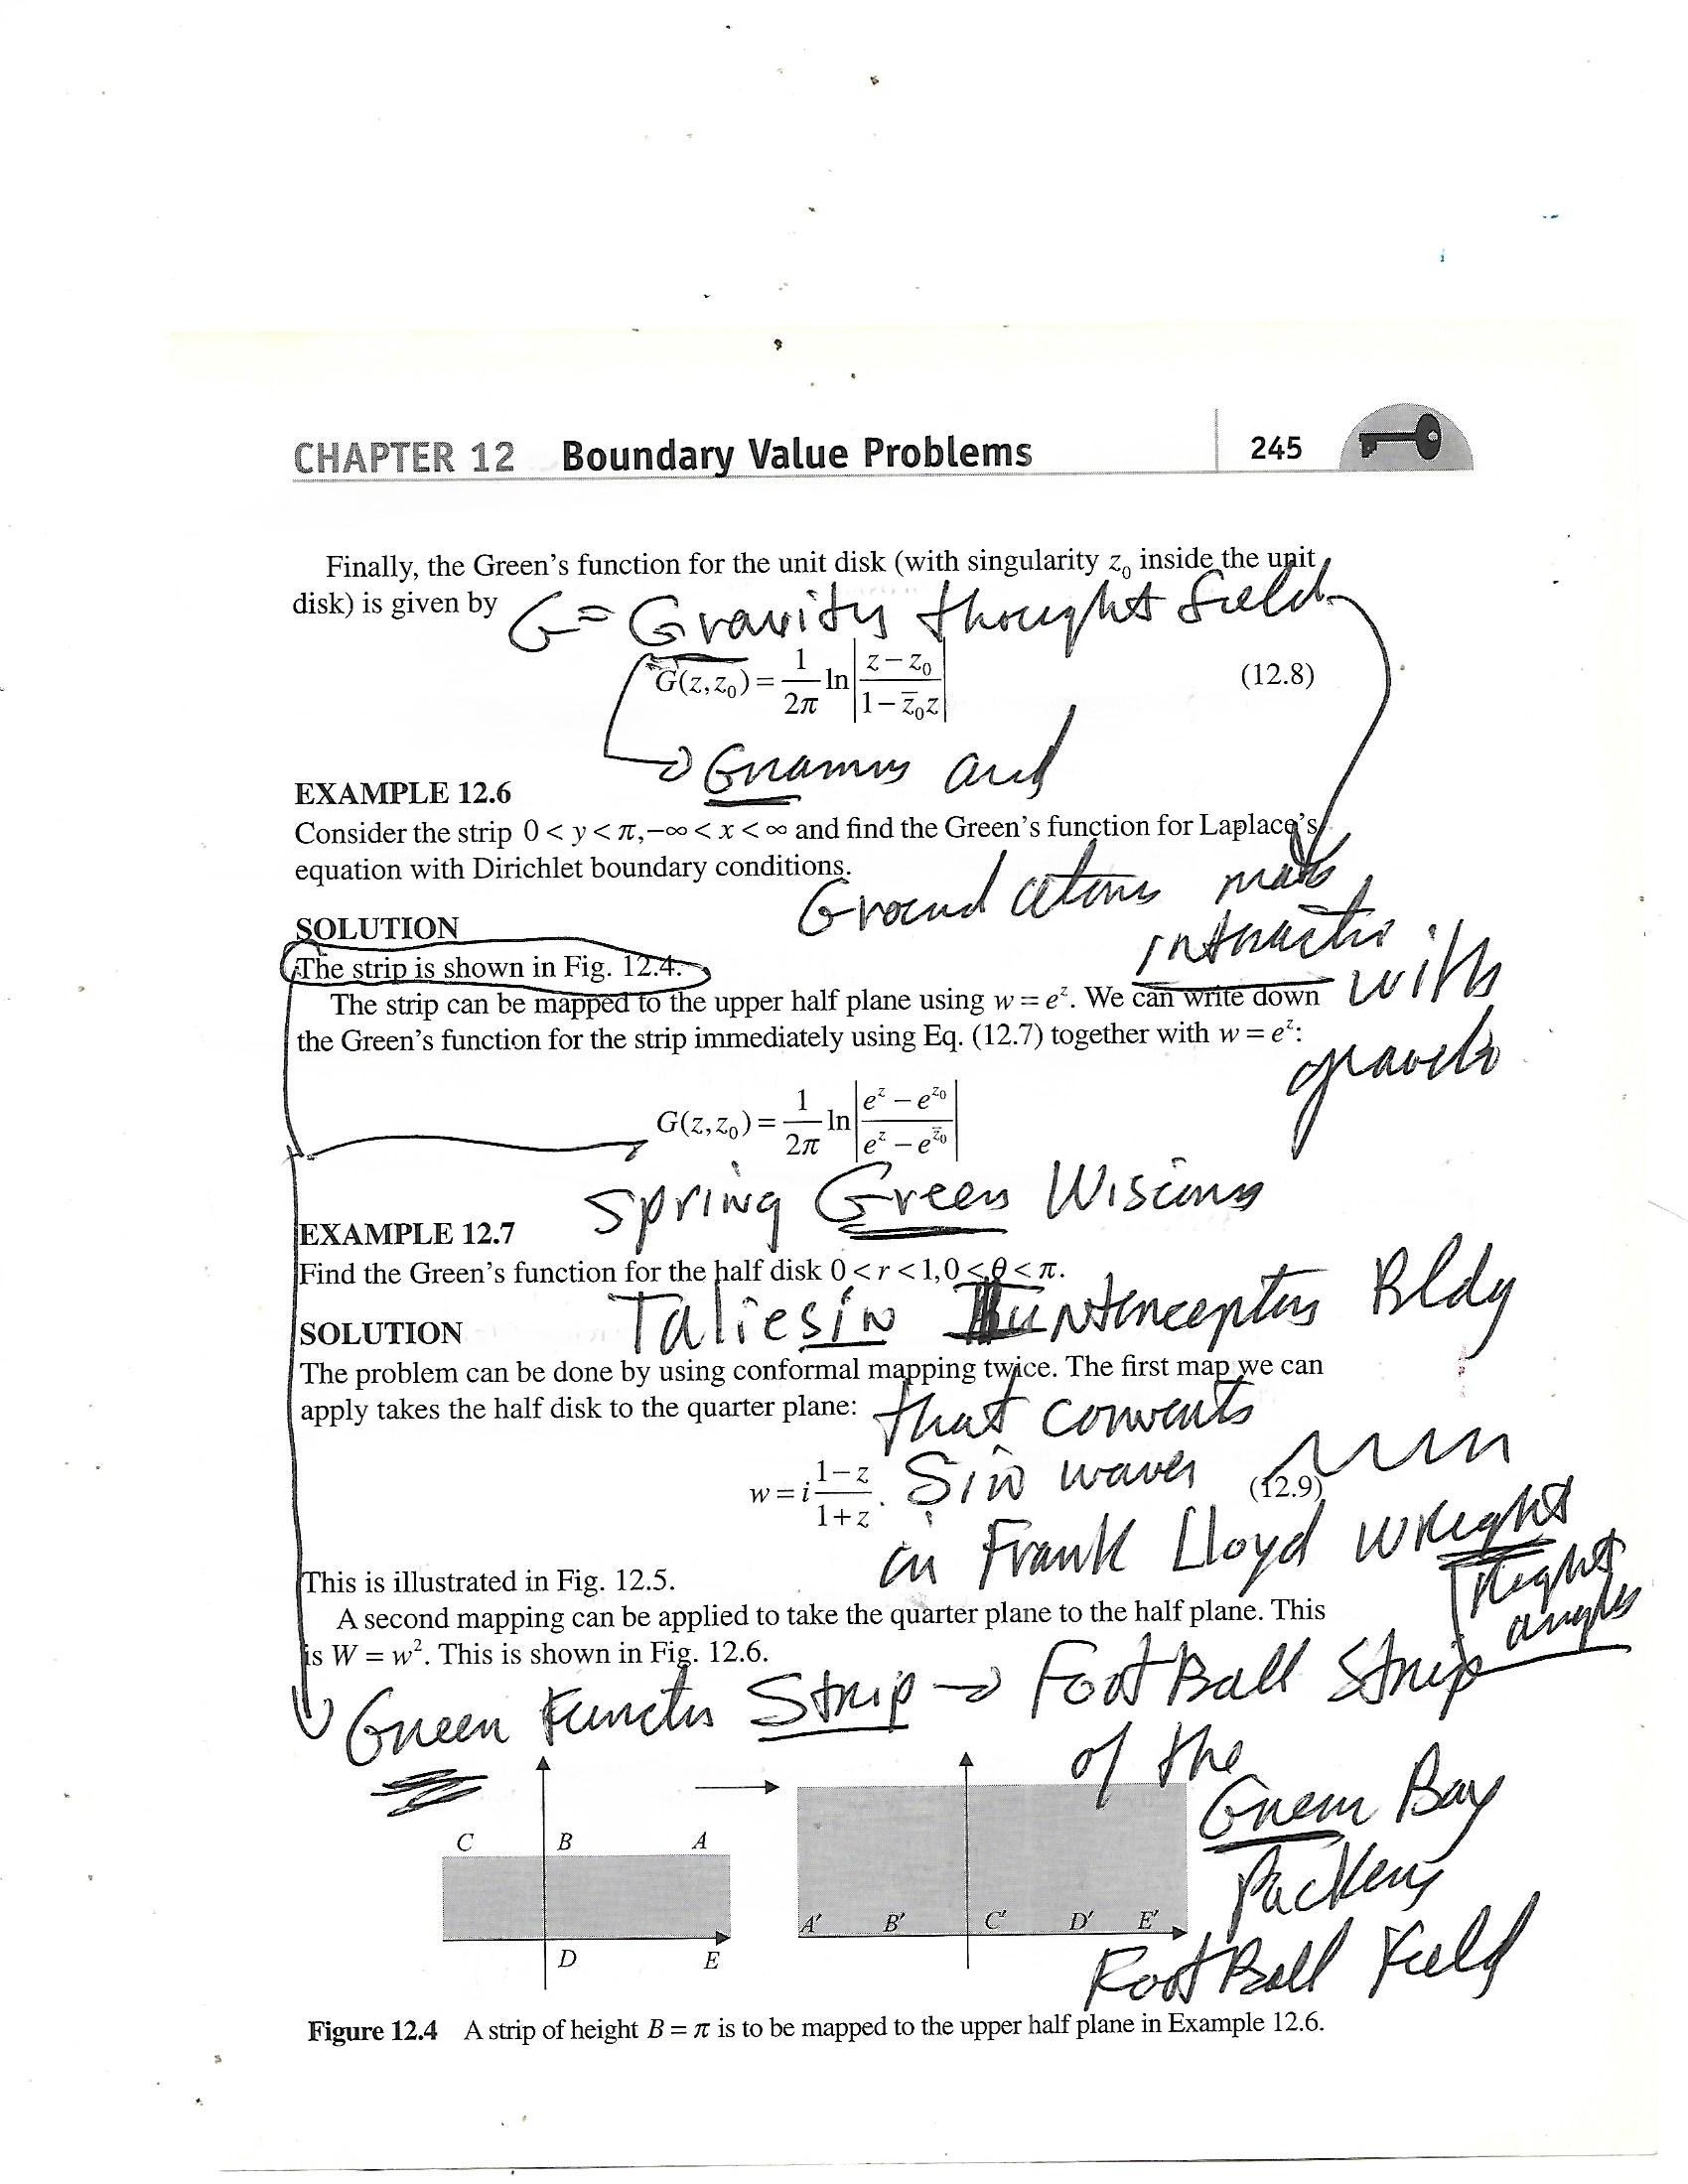 CHAPTER 12 Boundary Value Problems 245
Finally, the Green's function for the unit disk (with singularity z₀ inside the unit
disk) is given by
G = Gravity thought field
G(z, z₀) = 1/2π ln |z − z₀ / 1 − z̄₀z| (12.8)
and
EXAMPLE 12.6
Consider the strip 0 < y < π, −∞ < x < ∞ and find the Green's function for Laplace's
equation with Dirichlet boundary conditions.
Ground atoms
SOLUTION
with
The strip is shown in Fig. 12.4.
The strip can be mapped to the upper half plane using w = eᶻ. We can write down
the Green's function for the strip immediately using Eq. (12.7) together with w = eᶻ:
G(z, z₀) = 1/2π ln |eᶻ − e^z₀ / eᶻ − e^z̄₀|
Spring Green
EXAMPLE 12.7
Find the Green's function for the half disk 0 < r < 1, 0 < θ < π.
Taliesin Bldg
SOLUTION
The problem can be done by using conformal mapping twice. The first map we can
apply takes the half disk to the quarter plane:
that converts
w = i 1 − z / 1 + z. (12.9)
Sin waves
in Frank Lloyd WReight
Right
angles
This is illustrated in Fig. 12.5.
A second mapping can be applied to take the quarter plane to the half plane. This
is W = w². This is shown in Fig. 12.6.
Green Strip → FootBall Strip
of the
Green Bay
Packers
FootBall Field
C B A
D E
A′ B′ C′ D′ E′
Figure 12.4 A strip of height B = π is to be mapped to the upper half plane in Example 12.6.